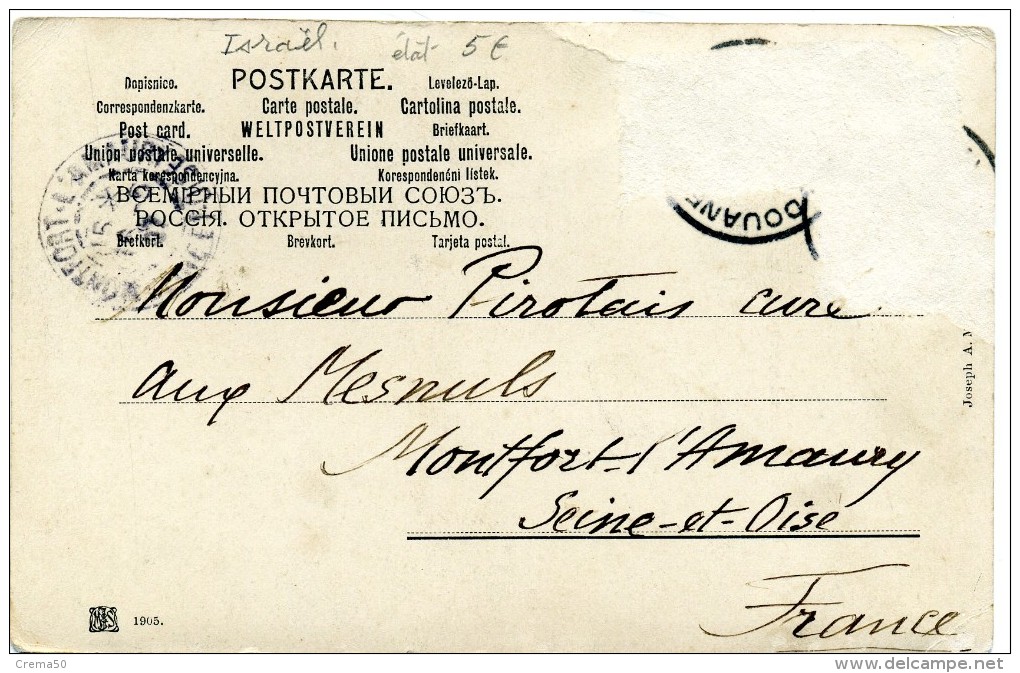 Israël. état 5 €
Dopisnice. POSTKARTE. Levelező-Lap.
Correspondenzkarte. Carte postale. Cartolina postale.
Post card. WELTPOSTVEREIN Briefkaart.
Union postale universelle. Unione postale universale.
Karta korespondencyjna. Korespondenční lístek.
ВСЕМІРНЫЙ ПОЧТОВЫЙ СОЮЗЪ.
РОССІЯ. ОТКРЫТОЕ ПИСЬМО.
Brefkort. Brevkort. Tarjeta postal.
MONTFORT-L'AMAURY
DOUANE
Monsieur Pirotais curé
aux Mesnuls
Montfort-l'Amaury
Seine-et-Oise
France
Joseph A.
1905.
Crema50
delcampe.net